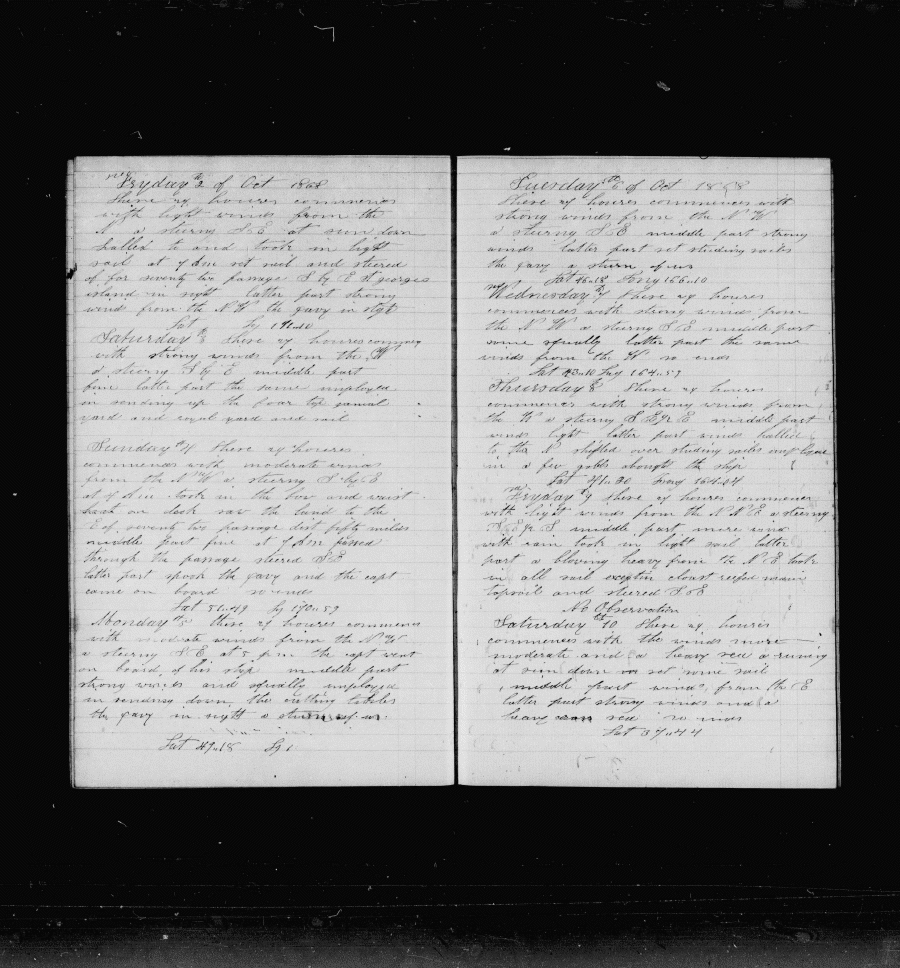 Fryday 2 of Oct 1868
these 24 houres commences
with light winds from the
N a steering S E at sun down
halled to and took in light
sail at 4 am set sail and steered
of for seventy two passage S by E St georges
island in sight latter part strong
winds from the N W the gavy in sight
Lat Lg
Saturday 3 these 24 houres commence
with strong winds from the W
a steering S by E middle part
fine latter part the same imployed
in sending up the foar top
yard and royal yard and sail
Sunday 4 these 24 houres
commences with moderate winds
from the N W a steering S by E
at 4 am took in the bow and waist
boats on deck saw the land to the
E of seventy two passage dist fifty miles
middle part fine at 7 am passed
through the passage steered S E
latter part spook the gavy and the capt
came on board so ends
Lat 51..49 Lg 170..59
Monday 5 these 24 houres commences
with moderate winds from the N W
a steering S E at 5 pm the capt went
on board of his ship middle part
strong winds and squally imployed
in sending down the cutting
the gavy in sight a sturn of us
Lat 49..18 Lg
Tuesday 6 of Oct 1868
these 24 houres commences with
strong winds from the N W
a steering S E middle part strong
winds latter part set studing sailes
the gavy a sturn of us
Lat 46..18 Long 166..10
Wednesday 7 these 24 houres
commences with strong winds from
the N W a steering S E middle part
some squally latter part the same
winds from the W so ends
Lat 43..10 Lng 164..59
Thursday 8 these 24 houres
commences with strong winds from
the W a steering S E middle part
winds light latter part winds halled
to the N shifted over studing sailes
in a few jobs abought the ship
Lat 41..30 Long 164..04
Fryday 9 these 24 houres commences
with light winds from the N N E a steering
S middle part more wind
with rain took in light sail latter
part a blowing heavy from the N E took
in all sail exceptin cloast reefed main
topsail and steered S E
No Observation
Saturday 10 these 24 houres
commences with the winds more
moderate and a heavy sea a runing
at sun down set some sail
middle part winds from the E
latter part strong winds and a
heavy sea so ends
Lat 37..44